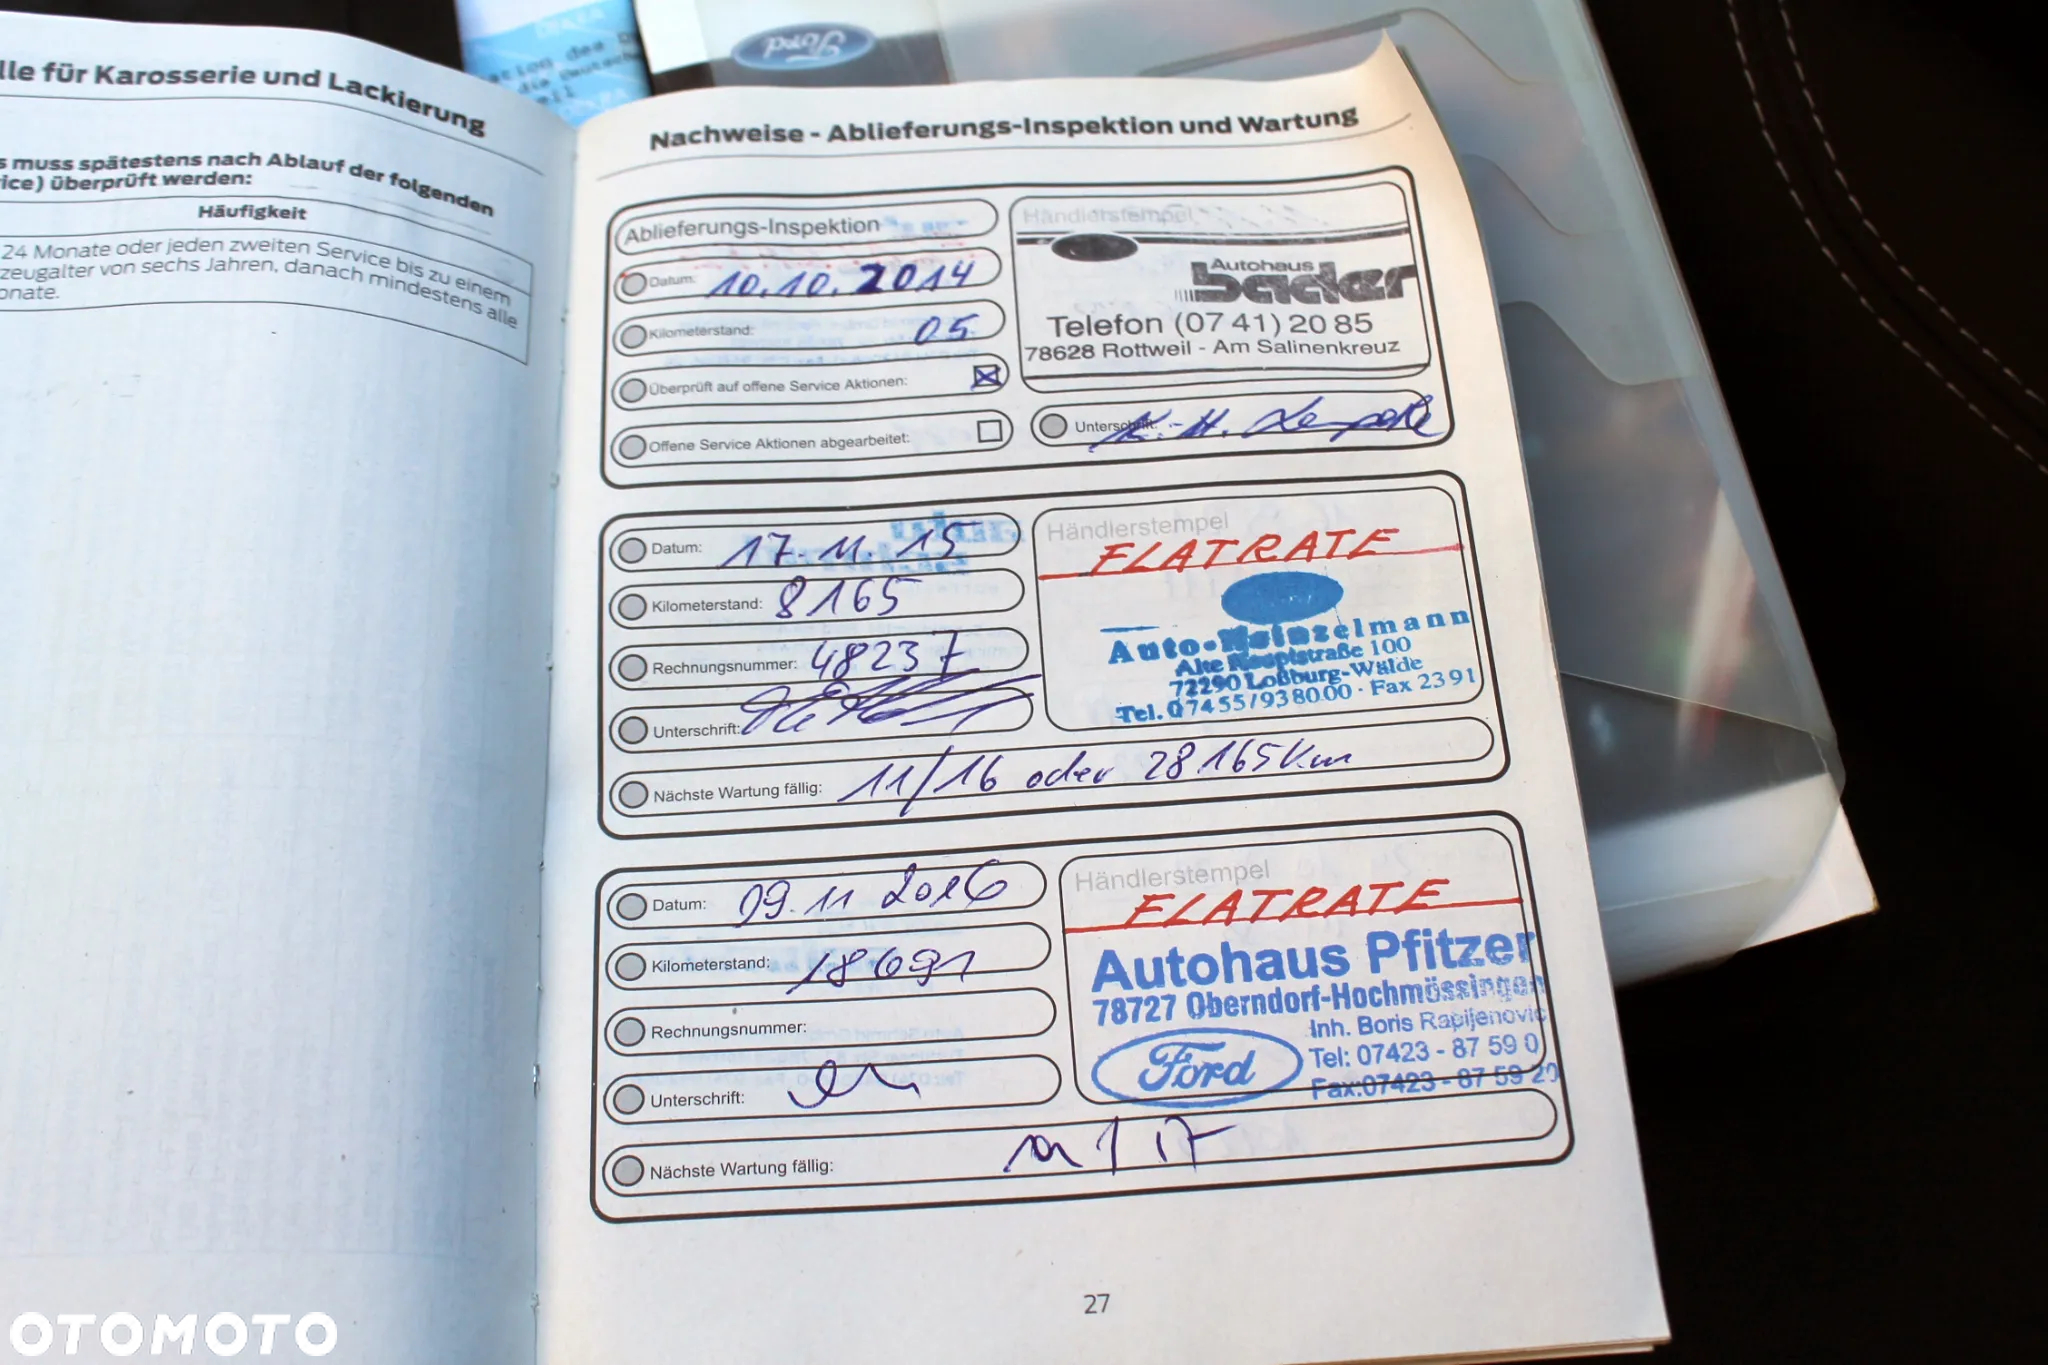 lle für Karosserie und Lackierung
s muss spätestens nach Ablauf der folgenden
ice) überprüft werden:
Häufigkeit
24 Monate oder jeden zweiten Service bis zu einem
zeugalter von sechs Jahren, danach mindestens alle
onate.
Ford
Nachweise - Ablieferungs-Inspektion und Wartung
Ablieferungs-Inspektion
Datum: 10.10.2014
Kilometerstand: 05
Überprüft auf offene Service Aktionen:
Offene Service Aktionen abgearbeitet:
Händlerstempel
Autohaus
bader
Telefon (07 41) 20 85
78628 Rottweil - Am Salinenkreuz
Unterschrift:
Datum: 17.11.15
Kilometerstand: 8165
Rechnungsnummer: 48237
Unterschrift:
Händlerstempel
FLATRATE
Auto-Heinzelmann
Alte Hauptstraße 100
72290 Loßburg-Wälde
Tel. 07455/938000 · Fax 2391
Nächste Wartung fällig: 11/16 oder 28.165 Km
Datum: 09.11 2016
Kilometerstand: 18691
Rechnungsnummer:
Unterschrift:
Händlerstempel
FLATRATE
Autohaus Pfitzer
78727 Oberndorf-Hochmössingen
Inh. Boris Rapijenovic
Ford
Tel: 07423 - 87 59 0
Fax:07423 - 87 59 20
Nächste Wartung fällig:
27
OTOMOTO